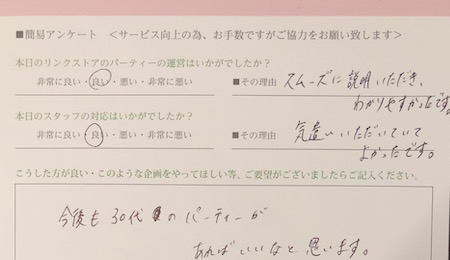 ■簡易アンケート <サービス向上の為、お手数ですがご協力をお願い致します>
本日のリンクストアのパーティーの運営はいかがでしたか?
非常に良い・良い・悪い・非常に悪い ■その理由 スムーズに説明いただき、
わかりやすかったです。
本日のスタッフの対応はいかがでしたか?
非常に良い・良い・悪い・非常に悪い ■その理由 気遣いいただいていて
よかったです。
こうした方が良い・このような企画をやってほしい等、ご要望がございましたらご記入ください。
今後も30代のパーティーが
あればいいなと思います。